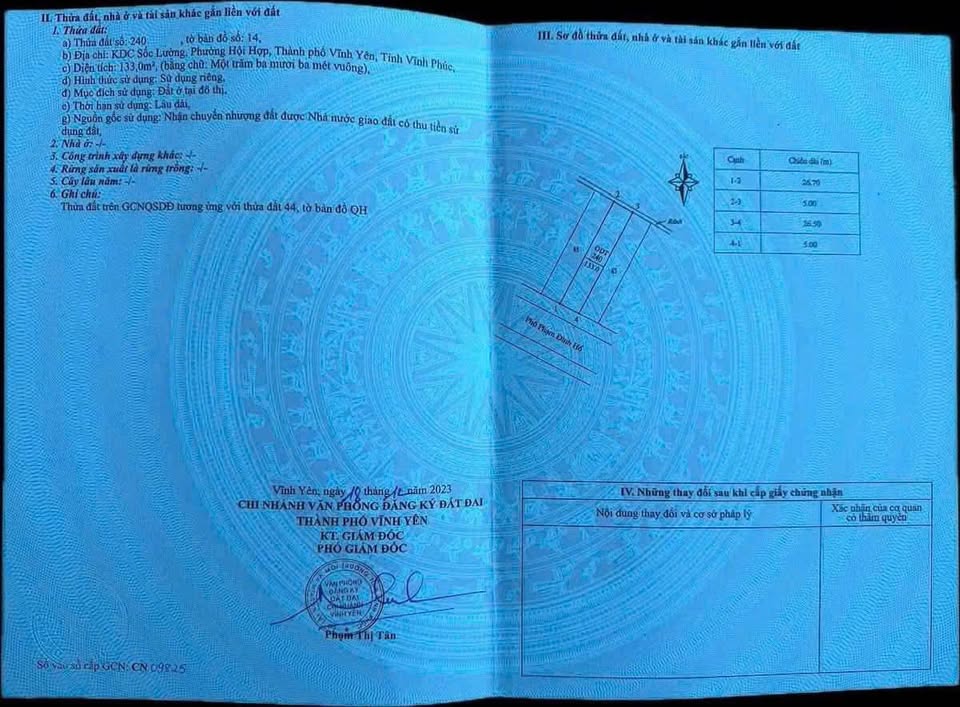 II. Thửa đất, nhà ở và tài sản khác gắn liền với đất
1. Thửa đất:
a) Thửa đất số: 240 , tờ bản đồ số: 14,
b) Địa chỉ: KDC Sốc Lường, Phường Hội Hợp, Thành phố Vĩnh Yên, Tỉnh Vĩnh Phúc,
c) Diện tích: 133,0m², (bằng chữ: Một trăm ba mươi ba mét vuông),
d) Hình thức sử dụng: Sử dụng riêng,
đ) Mục đích sử dụng: Đất ở tại đô thị,
e) Thời hạn sử dụng: Lâu dài,
g) Nguồn gốc sử dụng: Nhận chuyển nhượng đất được Nhà nước giao đất có thu tiền sử
dụng đất,
2. Nhà ở: -/-
3. Công trình xây dựng khác: -/-
4. Rừng sản xuất là rừng trồng: -/-
5. Cây lâu năm: -/-
6. Ghi chú:
Thửa đất trên GCNQSDĐ tương ứng với thửa đất 44, tờ bản đồ QH
Vĩnh Yên, ngày 18 tháng 12 năm 2023
CHI NHÁNH VĂN PHÒNG ĐĂNG KÝ ĐẤT ĐAI
THÀNH PHỐ VĨNH YÊN
KT. GIÁM ĐỐC
PHÓ GIÁM ĐỐC
VĂN PHÒNG
ĐĂNG KÝ
ĐẤT ĐAI
CHI NHÁNH
VĨNH YÊN
Phạm Thị Tân
Số vào sổ cấp GCN: CN 09825
III. Sơ đồ thửa đất, nhà ở và tài sản khác gắn liền với đất
Bắc
Cạnh Chiều dài (m)
1-2 26.70
2-3 5.00
3-4 26.50
4-1 5.00
2
3
Rãnh
ODT
240
133.0
4
Phố Phạm Đình Hổ
IV. Những thay đổi sau khi cấp giấy chứng nhận
Nội dung thay đổi và cơ sở pháp lý
Xác nhận của cơ quan
có thẩm quyền